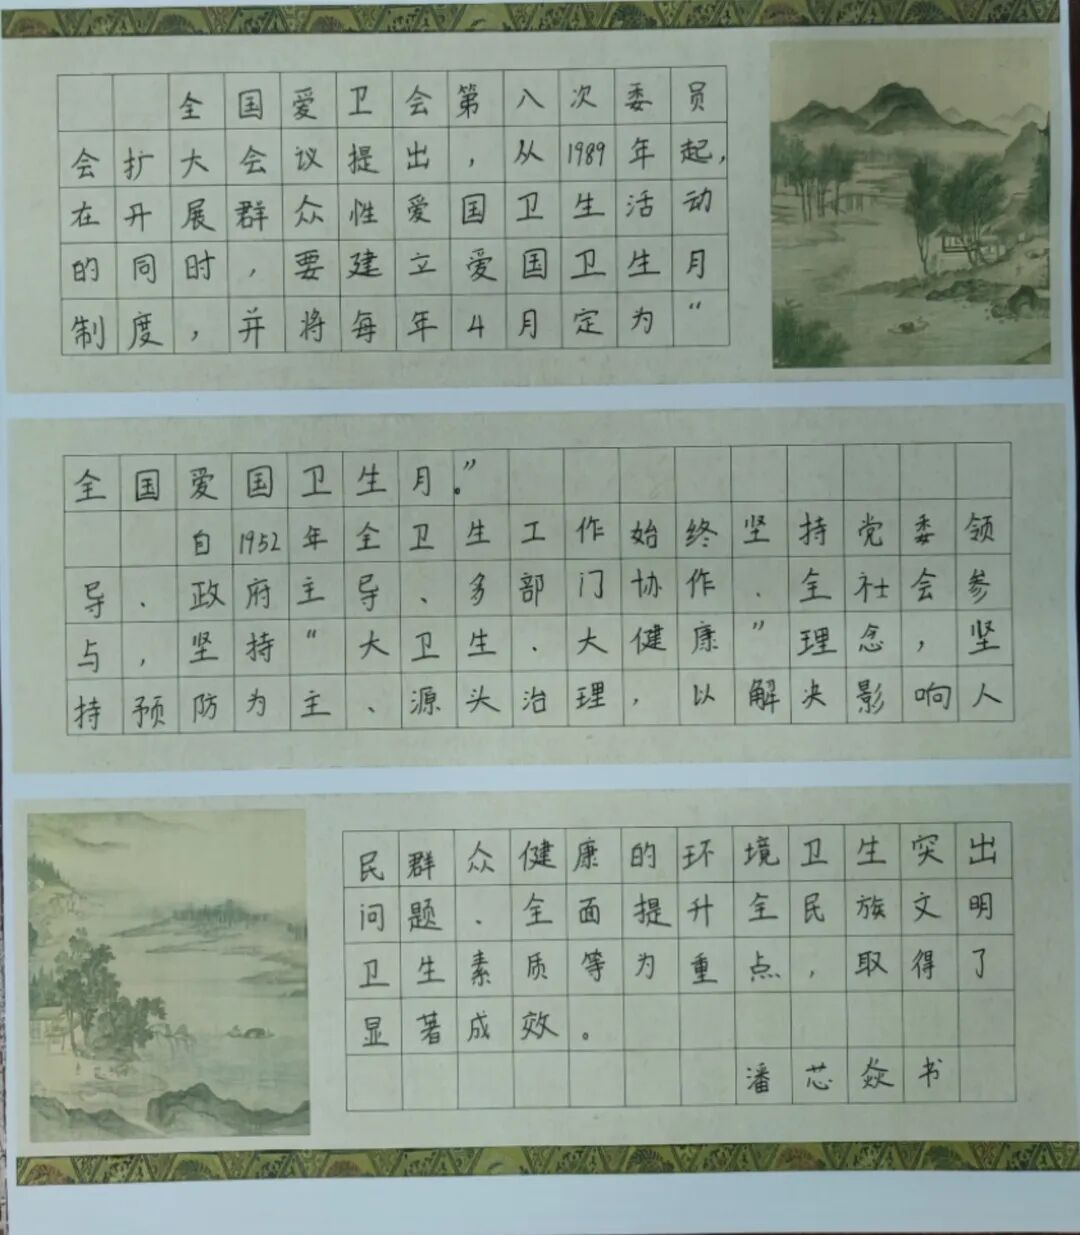 全国爱卫会第八次委员
会扩大会议提出，从1989年起，
在开展群众性爱国卫生活动
的同时，要建立爱国卫生月
制度，并将每年4月定为“
全国爱国卫生月。”
自1952年全卫生工作始终坚持党委领
导、政府主导、多部门协作、全社会参
与，坚持“大卫生、大健康”理念，坚
持预防为主、源头治理，以解决影响人
民群众健康的环境卫生突出
问题、全面提升全民族文明
卫生素质等为重点，取得了
显著成效。
潘芯焱书